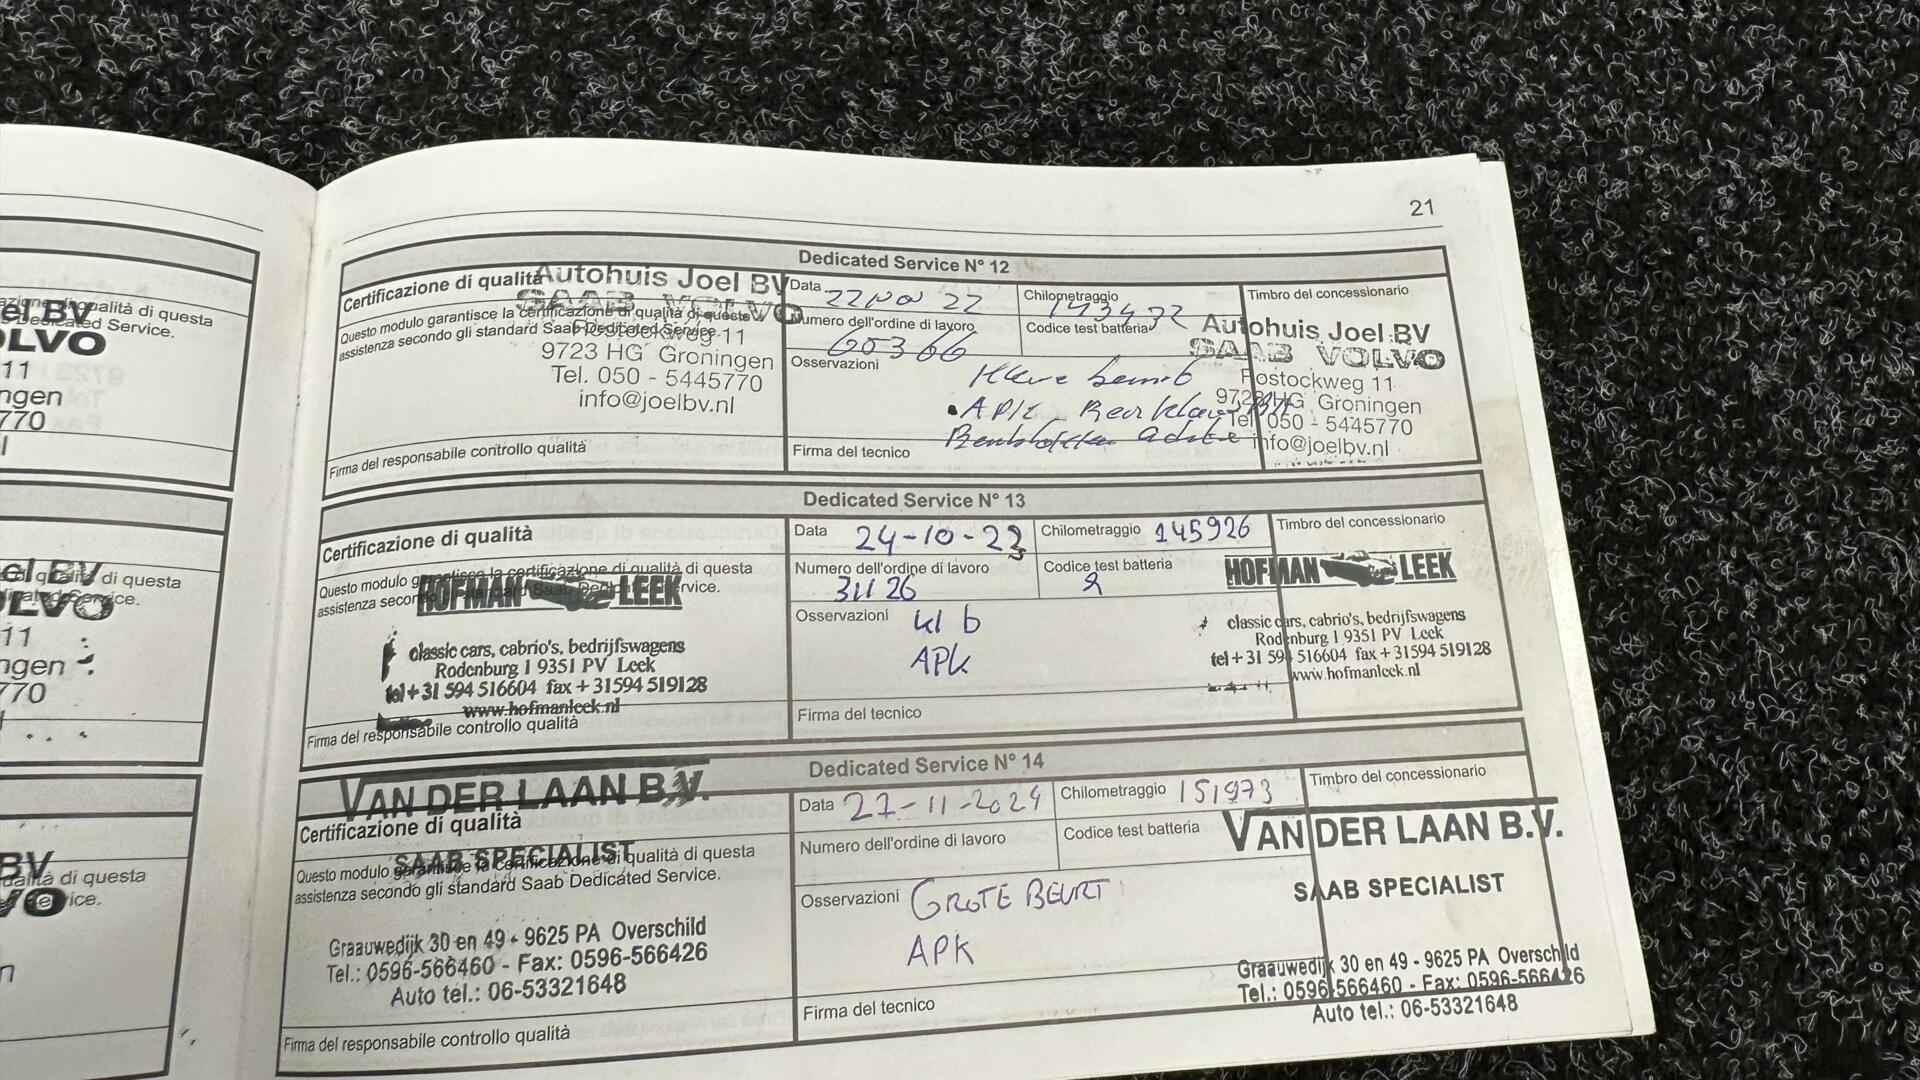 el BV
azione di qualità di questa
Dedicated Service.
OLVO
11
ngen
770
l
el BV
di qualità di questa
dicated Service.
OLVO
11
ngen
770
BV
qualità di questa
vice.
VO
n
21
Dedicated Service N° 12
Certificazione di qualità
Autohuis Joel BV
SAAB VOLVO
Questo modulo garantisce la certificazione di qualità di questa
assistenza secondo gli standard Saab Dedicated Service.
Rostockweg 11
9723 HG Groningen
Tel. 050 - 5445770
info@joelbv.nl
Firma del responsabile controllo qualità
Data 22 nov 22
Chilometraggio 143432
Numero dell'ordine di lavoro
60366
Codice test batteria
Osservazioni
APK
Firma del tecnico
Timbro del concessionario
Autohuis Joel BV
SAAB VOLVO
Rostockweg 11
9723 HG Groningen
Tel. 050 - 5445770
info@joelbv.nl
Dedicated Service N° 13
Certificazione di qualità
Questo modulo garantisce la certificazione di qualità di questa
assistenza secondo gli standard Saab Dedicated Service.
HOFMAN LEEK
classic cars, cabrio's, bedrijfswagens
Rodenburg 1 9351 PV Leek
tel + 31 594 516604 fax + 31594 519128
www.hofmanleek.nl
Firma del responsabile controllo qualità
Data 24-10-23
Chilometraggio 145926
Numero dell'ordine di lavoro
Codice test batteria
Osservazioni kl b
APK
Firma del tecnico
Timbro del concessionario
HOFMAN LEEK
classic cars, cabrio's, bedrijfswagens
Rodenburg 1 9351 PV Leek
tel + 31 594 516604 fax + 31594 519128
www.hofmanleek.nl
Dedicated Service N° 14
VAN DER LAAN B.V.
Certificazione di qualità
SAAB SPECIALIST
Questo modulo garantisce la certificazione di qualità di questa
assistenza secondo gli standard Saab Dedicated Service.
Graauwedijk 30 en 49 - 9625 PA Overschild
Tel.: 0596-566460 - Fax: 0596-566426
Auto tel.: 06-53321648
Firma del responsabile controllo qualità
Data 27-11-2024
Chilometraggio 151973
Numero dell'ordine di lavoro
Codice test batteria
Osservazioni GROTE BEURT
APK
Firma del tecnico
Timbro del concessionario
VAN DER LAAN B.V.
SAAB SPECIALIST
Graauwedijk 30 en 49 - 9625 PA Overschild
Tel.: 0596-566460 - Fax: 0596-566426
Auto tel.: 06-53321648